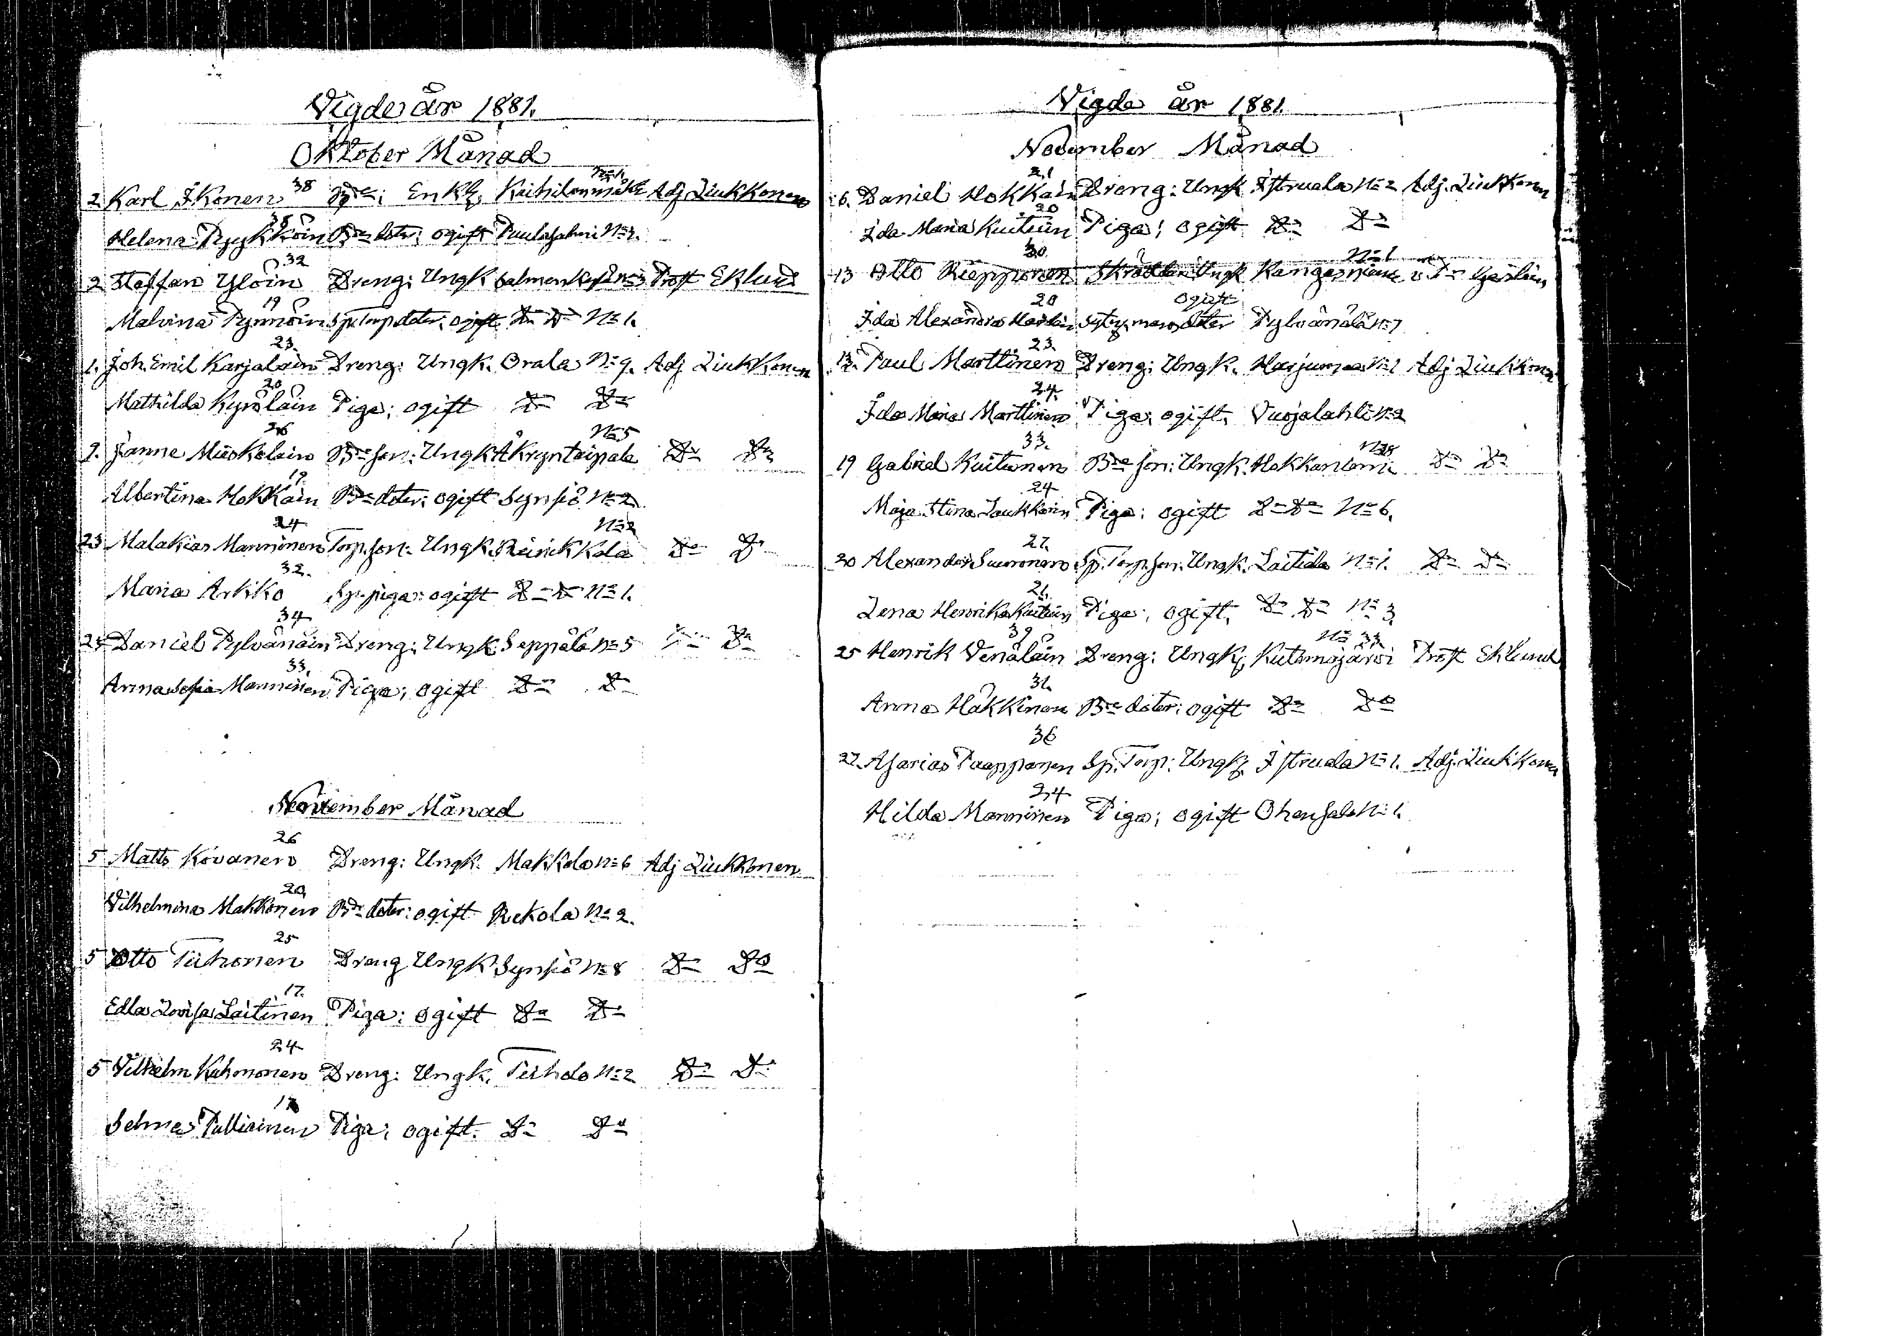 Vigde år 1881.
Oktober Månad
2 Karl Ikonen 38 Bde; Enkl. N=1 Adj Liukkonen
Helena Pyykköin 28 Bde doter; ogift Paulasalmi N=
2 Staffan Ylöin 32 Dreng: Ungk. Prost Eklund
Malvina Pynnöin 19 ogift Do Do N=1.
1. Joh. Emil Karjalain 23 Dreng: Ungk. Orala N=9. Adj Liukkonen
Mathilda Kyröläin 20 Piga; ogift Do Do
9. Janne Mieskolain 26 Bde son: Ungk. Kryntaipale N=5 Do Do
Albertina Hokkain 19 Bde doter: ogift Synsiö N=2
23 Malakias Manninen 24 Torp. son: Ungk. Reinikkala N=2 Do Do
Maria Arkko 32. Sp. piga: ogift Do Do N=1.
Daniel Pylvänäin 34 Dreng: Ungk. Seppälä N=5 Do Do
Anna Sofia Manninen 33. Piga; ogift Do Do
November Månad
5 Matts Kovanen 26 Dreng: Ungk. Makkola N=6 Adj Liukkonen
Vilhelmina Makkonen 20 Bde doter: ogift Rekola N=2.
5 Otto Tiihonen 25 Dreng Ungk. Synsiö N=8 Do Do
Edla Lovisa Laitinen 17. Piga: ogift Do Do
5 Vilhelm Kuhmonen 24 Dreng: Ungk. Tiihola N=2 Do Do
Selma Pulliainen Piga; ogift. Do Do
Vigde år 1881.
November Månad
6. Daniel Hokkain 21 Dreng: Ungk. Istruala N=2 Adj. Liukkonen
Ida Maria Kuituin 20 Piga; ogift Do Do
13 Otto Riepponen 30. Skräddare Ungk Kangasniemi N=1
Ida Alexandra 20 doter ogift Pylvänälä N=7
12. Paul Marttinen 23. Dreng: Ungk. Harjumaa N=1 Adj Liukkonen
Ida Maria Marttinen 24. Piga; ogift. Vuojalahti N=2
19 Gabriel Kuitunen 33. Bde son: Ungk. Hokkanlemi N=38 Do Do
Maja Stina Laukkain 24 Piga: ogift Do Do N=6.
20 Alexander Suuronen 27. Sp. Torp. son: Ungk. Laitila N=1. Do Do
Lena Henrika Kuituin 21. Piga; ogift. Do Do N=3
25 Henrik Venäläin 39 Dreng: Ungk. Kutemajärvi N=33 Prost Eklund
Anna Häkkinen 31. Bde doter; ogift Do Do
27. Asarias Paapponen 36 Sp. Torp: Ungk. Istruala N=1. Adj. Liukkonen
Hilda Manninen 24 Piga; ogift Ohensalo N=1.